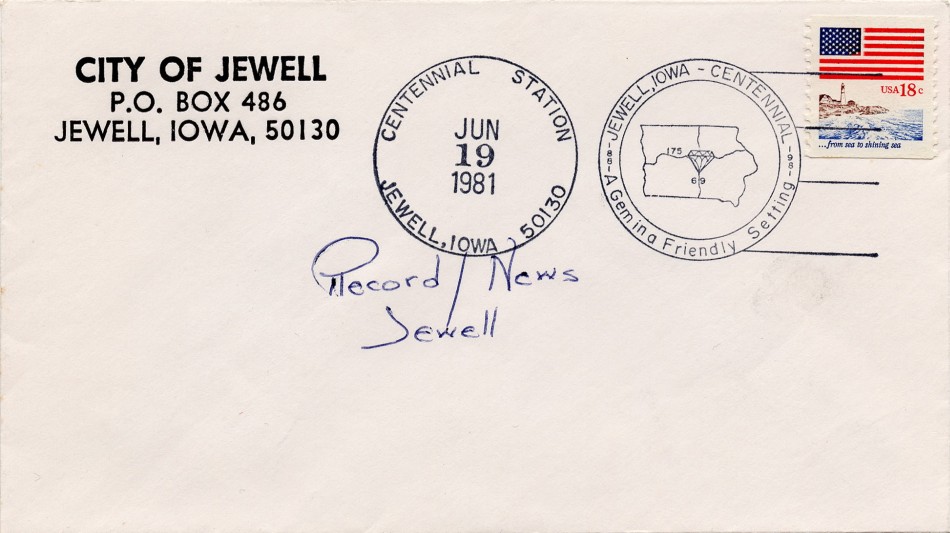 CITY OF JEWELL
P.O. BOX 486
JEWELL, IOWA, 50130
CENTENNIAL STATION
JUN
19
1981
JEWELL, IOWA 50130
JEWELL, IOWA - CENTENNIAL
175
69
A Gem in a Friendly Setting
USA 18c
...from sea to shining sea
Record/News
Jewell